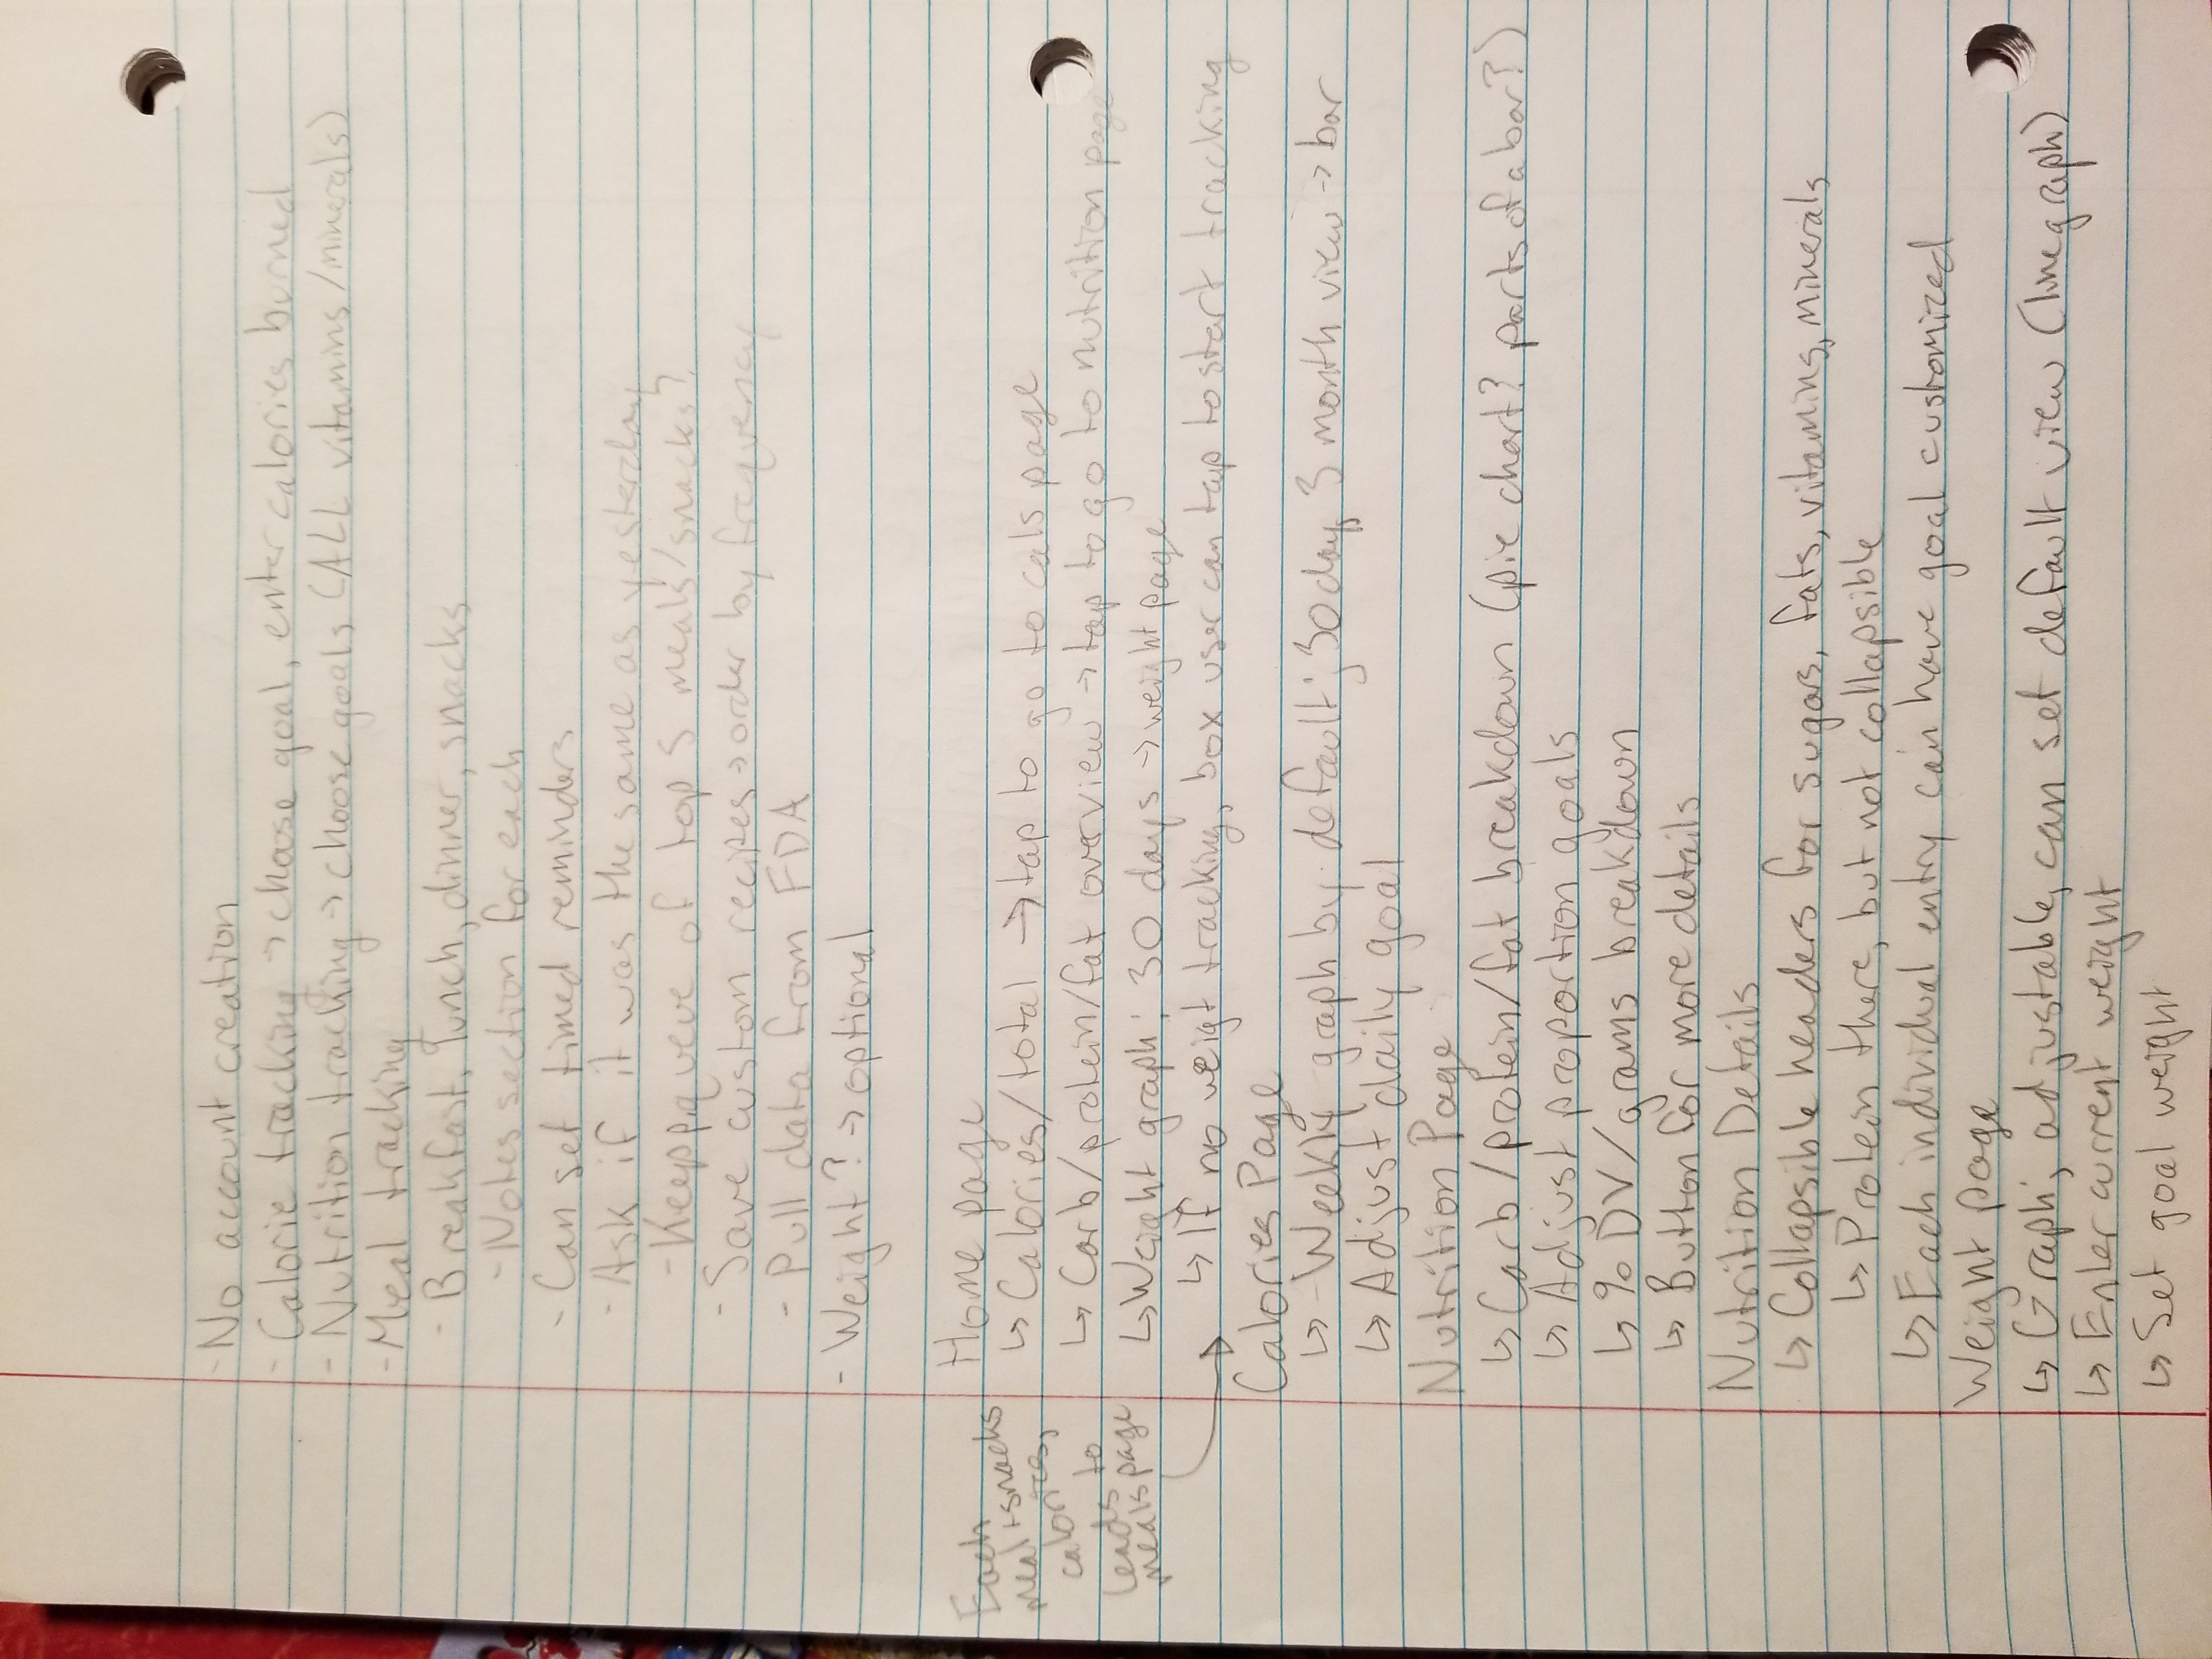 - No account creation
- Calorie tracking → choose goal, enter calories burned
- Nutrition tracking → choose goals (ALL vitamins/minerals)
- Meal tracking
- Breakfast, lunch, dinner, snacks
- Notes section for each
- Can set timed reminders
- Ask if it was the same as yesterday
- Keep p.queue of top 5 meals/snacks?
- Save custom recipes → order by frequency
- Pull data from FDA
- Weight? → optional
Home page
↳ Calories/total → tap to go to cals page
↳ Carb/protein/fat overview → tap to go to nutrition page
↳ Weight graph; 30 days → weight page
↳ If no weigt tracking, box user can tap to start tracking
Each
meal + snacks
calories,
leads to
meals page
Calories Page
↳ - Weekly graph by default; 30 day, 3 month view → bar
↳ Adjust daily goal
Nutrition Page
↳ Carb/protein/fat breakdown (pie chart? parts of a bar?)
↳ Adjust proportion goals
↳ % DV/grams breakdown
↳ Button for more details
Nutrition Details
↳ Collapsible headers for sugars, fats, vitamins, minerals
↳ Protein there, but not collapsible
↳ Each individual entry can have goal customized
Weight page
↳ Graph; adjustable, can set default view (line graph)
↳ Enter current weight
↳ Set goal weight